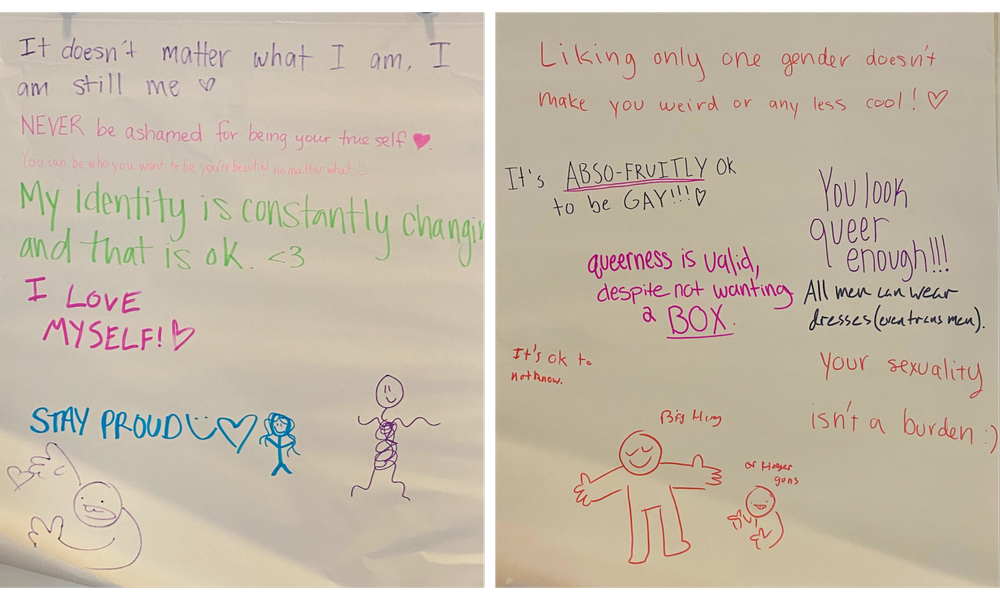 It doesn't matter what I am, I
am still me ♡
NEVER be ashamed for being your true self ♥.
You can be who you want to be you're beautiful no matter what :)
My identity is constantly changin
and that is ok. <3
I LOVE
MYSELF! ♡
STAY PROUD ♡
Liking only one gender doesn't
make you weird or any less cool! ♡
It's ABSO-FRUITLY OK
to be GAY!!! ♡
You look
queer
enough!!!
queerness is valid,
despite not wanting
a BOX.
All men can wear
dresses (even trans men).
It's ok to
not know.
your sexuality
isn't a burden :)
Big Hug
or finger
guns